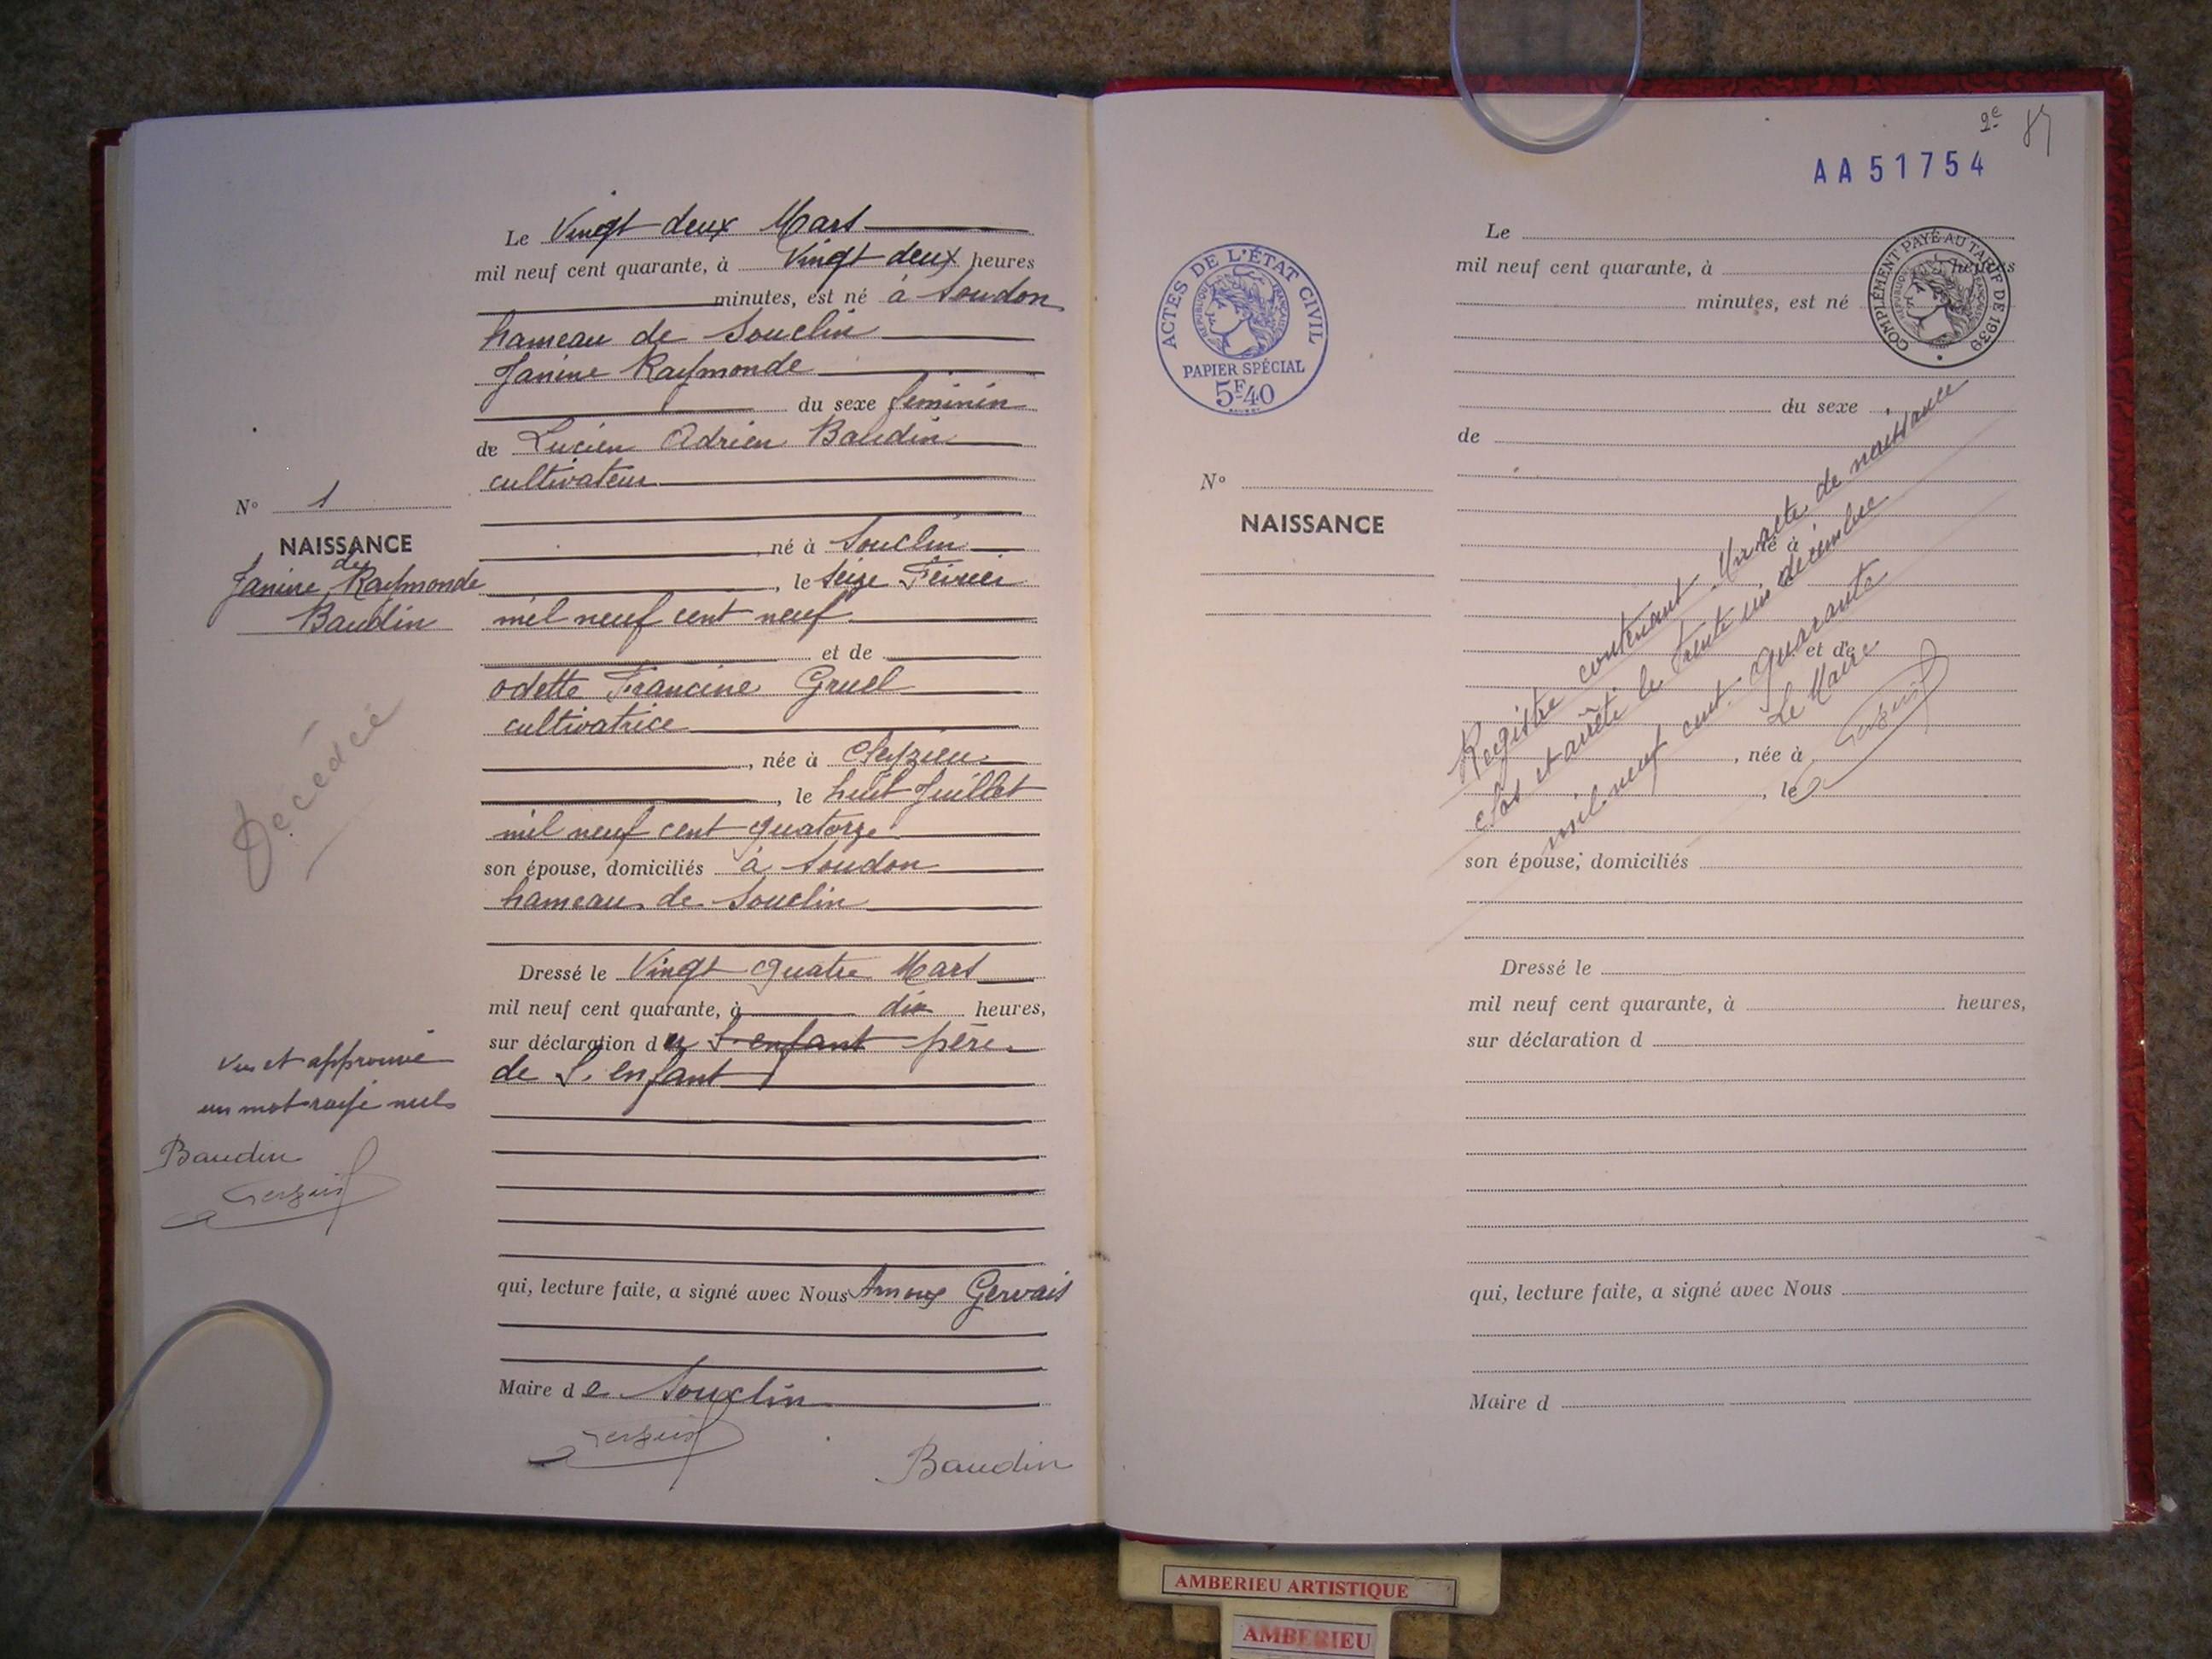 Le Vingt deux Mars
mil neuf cent quarante, à Vingt deux heures
minutes, est né à Soudon
hameau de Souclin
Janine Raymonde
du sexe féminin
de Lucien Adrien Baudin
cultivateur
N° 1
NAISSANCE
de
Janine Raymonde
Baudin
né à Souclin
, le seize Février
mil neuf cent neuf
et de
odette Francine Gruel
cultivatrice
, née à Cleyzieu
, le huit Juillet
mil neuf cent quatorze
son épouse, domiciliés à Soudon
hameau de Souclin
Décédée
Dressé le Vingt quatre Mars
mil neuf cent quarante, à dix heures,
sur déclaration du L'enfant père
de L'enfant
Vu et approuvé
un mot rayé nuls
Baudin
qui, lecture faite, a signé avec Nous Arnoux Gervais
Maire de Souclin
Baudin
2e
AA51754
ACTES DE L'ÉTAT CIVIL
RÉPUBLIQUE FRANÇAISE
PAPIER SPÉCIAL
5F40
COMPLÉMENT PAYÉ AU TARIF DE 1939
RÉPUBLIQUE FRANÇAISE
Le
mil neuf cent quarante, à heures
minutes, est né
du sexe
de
N°
NAISSANCE
né à
et de
, née à
, le
Registre contenant Un acte de naissance
clos et arrêté le trente un décembre
mil neuf cent quarante
Le Maire
son épouse, domiciliés
Dressé le
mil neuf cent quarante, à heures,
sur déclaration d
qui, lecture faite, a signé avec Nous
Maire d
AMBERIEU ARTISTIQUE
AMBERIEU